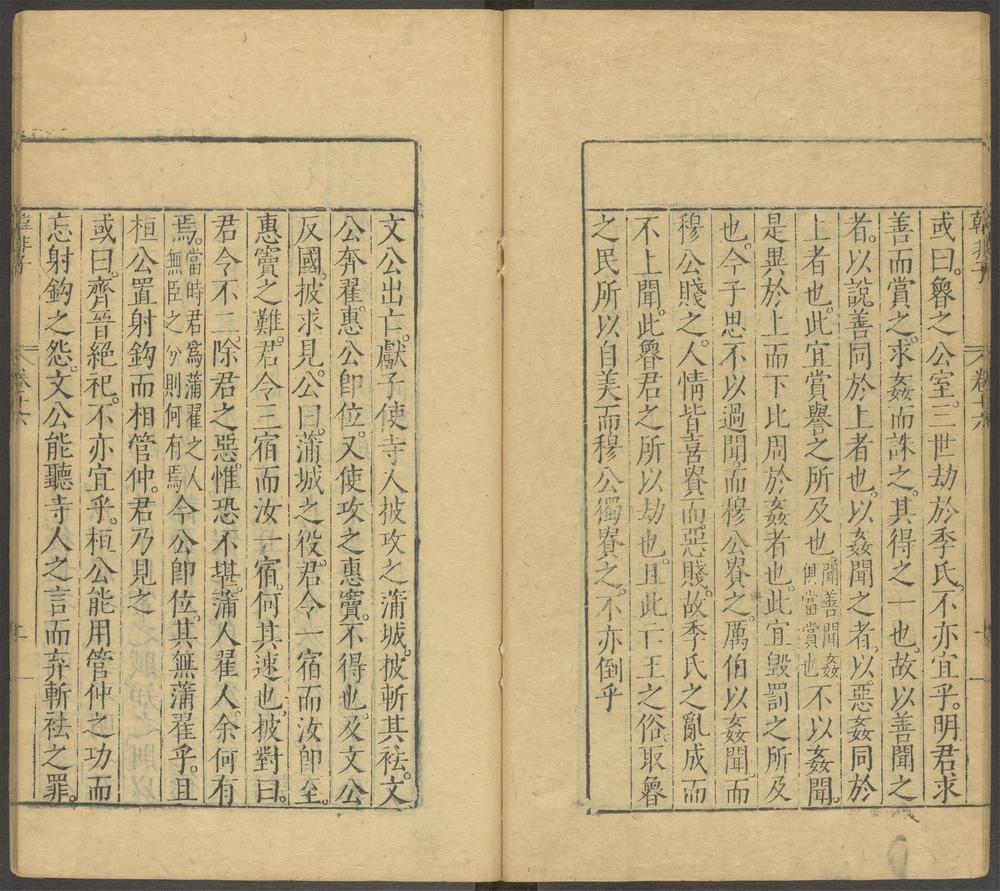 韓非子 卷十六 一
或曰。魯之公室。三世劫於季氏。不亦宜乎。明君求
善而賞之。求姦而誅之。其得之一也。故以善聞之
者。以說善同於上者也。以姦聞之者。以惡姦同於
上者也。此宜賞譽之所及也。聞善聞姦俱當賞也不以姦聞。
是異於上而下比周於姦者也。此宜毀罰之所及
也。今子思不以過聞。而穆公貴之。厲伯以姦聞。而
穆公賤之。人情皆喜貴而。惡賤。故季氏之亂成而
不上聞。此魯君之所以劫也。且此亡王之俗。取魯
之民所以自美。而穆公獨貴之。不亦倒乎
文公出亡。獻子使寺人披攻之蒲城。披斬其袪。文
公奔翟。惠公卽位。又使攻之惠竇。不得也。及文公
反國。披求見。公曰。蒲城之役。君令一宿而汝卽至。
惠竇之難。君令三宿而汝一宿。何其速也。披對曰。
君令不二。除君之惡。惟恐不堪。蒲人翟人。余何有
焉。當時君爲蒲翟之人無臣之分則何有焉今公卽位。其無蒲翟乎。且
桓公置射鈎而相管仲。君乃見之
或曰。齊晉絕祀。不亦宜乎。桓公能用管仲之功而
忘射鈎之怨。文公能聽寺人之言而弃斬袪之罪。
韓非子 卷十六 二